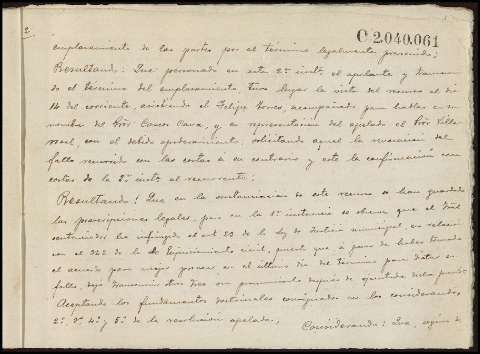 2.
C 2.040.061
emplazamiento de las partes por el término legalmente prevenido;
Resultando: Que personado en esta 2ª inst. el apelante y
do el término del emplazamiento, tuvo lugar la vista del recurso el día
14 del corriente, asistiendo el Felipe acompañado para hablar en su
nombre del Prór y en representación del apelado el Prór
con el debido apoderamiento, solicitando aquel la revocación del
fallo recurrido con las costas á su contrario y este la confirmación con
costas de la 2ª inst. al recurrente;
Resultando: Que en la sustanciación de este recurso se han guardado
las prescripciones legales, pero en la 1ª instancia se observa que el
ha infringido el art 23 de la ley de Justicia municipal, en relación
con el 322 de la de Enjuiciamiento civil, puesto que á pesar de haber tomado
el acuerdo para mejor proveer en el último día del término para dictar
fallo, dejó transcurrir otros días sin pronunciarlo después de ejecutada dicha prueba;
Aceptando los fundamentos doctrinales consignados en los considerandos
2º, 3º, 4º y 5º de la resolución apelada,
Considerando: Que, según